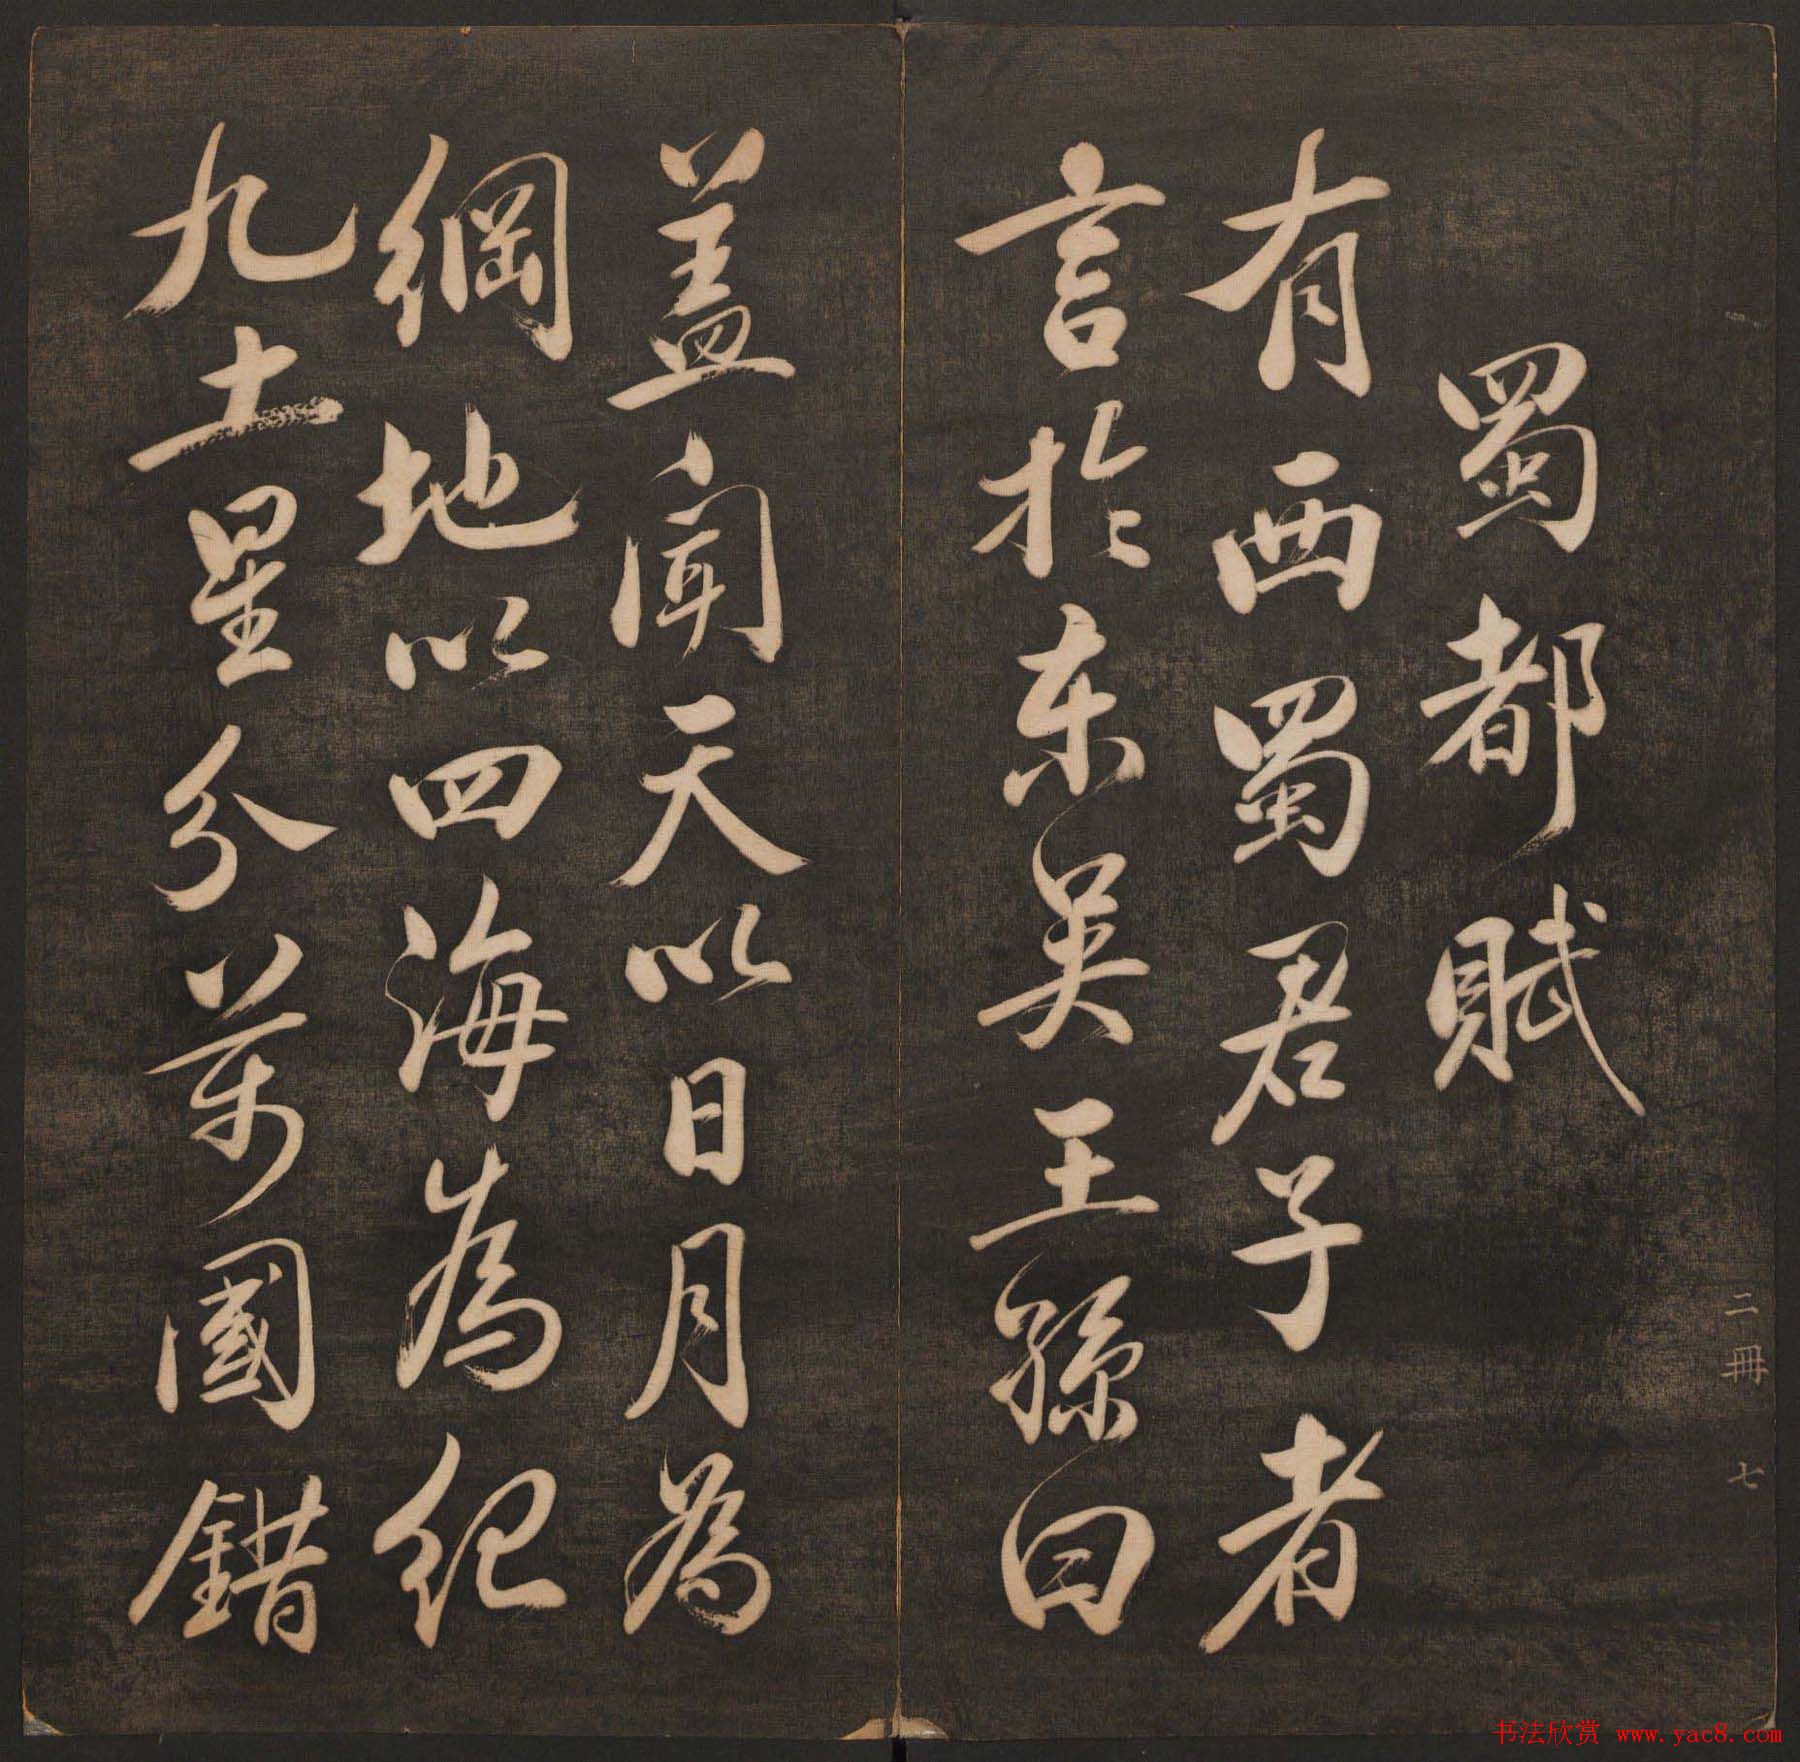 蜀都賦
有西蜀君子者
言於东吴王孫曰
盖闻天以日月為
綱地以四海為紀
九土星分萬國錯
二冊 七
书法欣赏 www.yac8.com